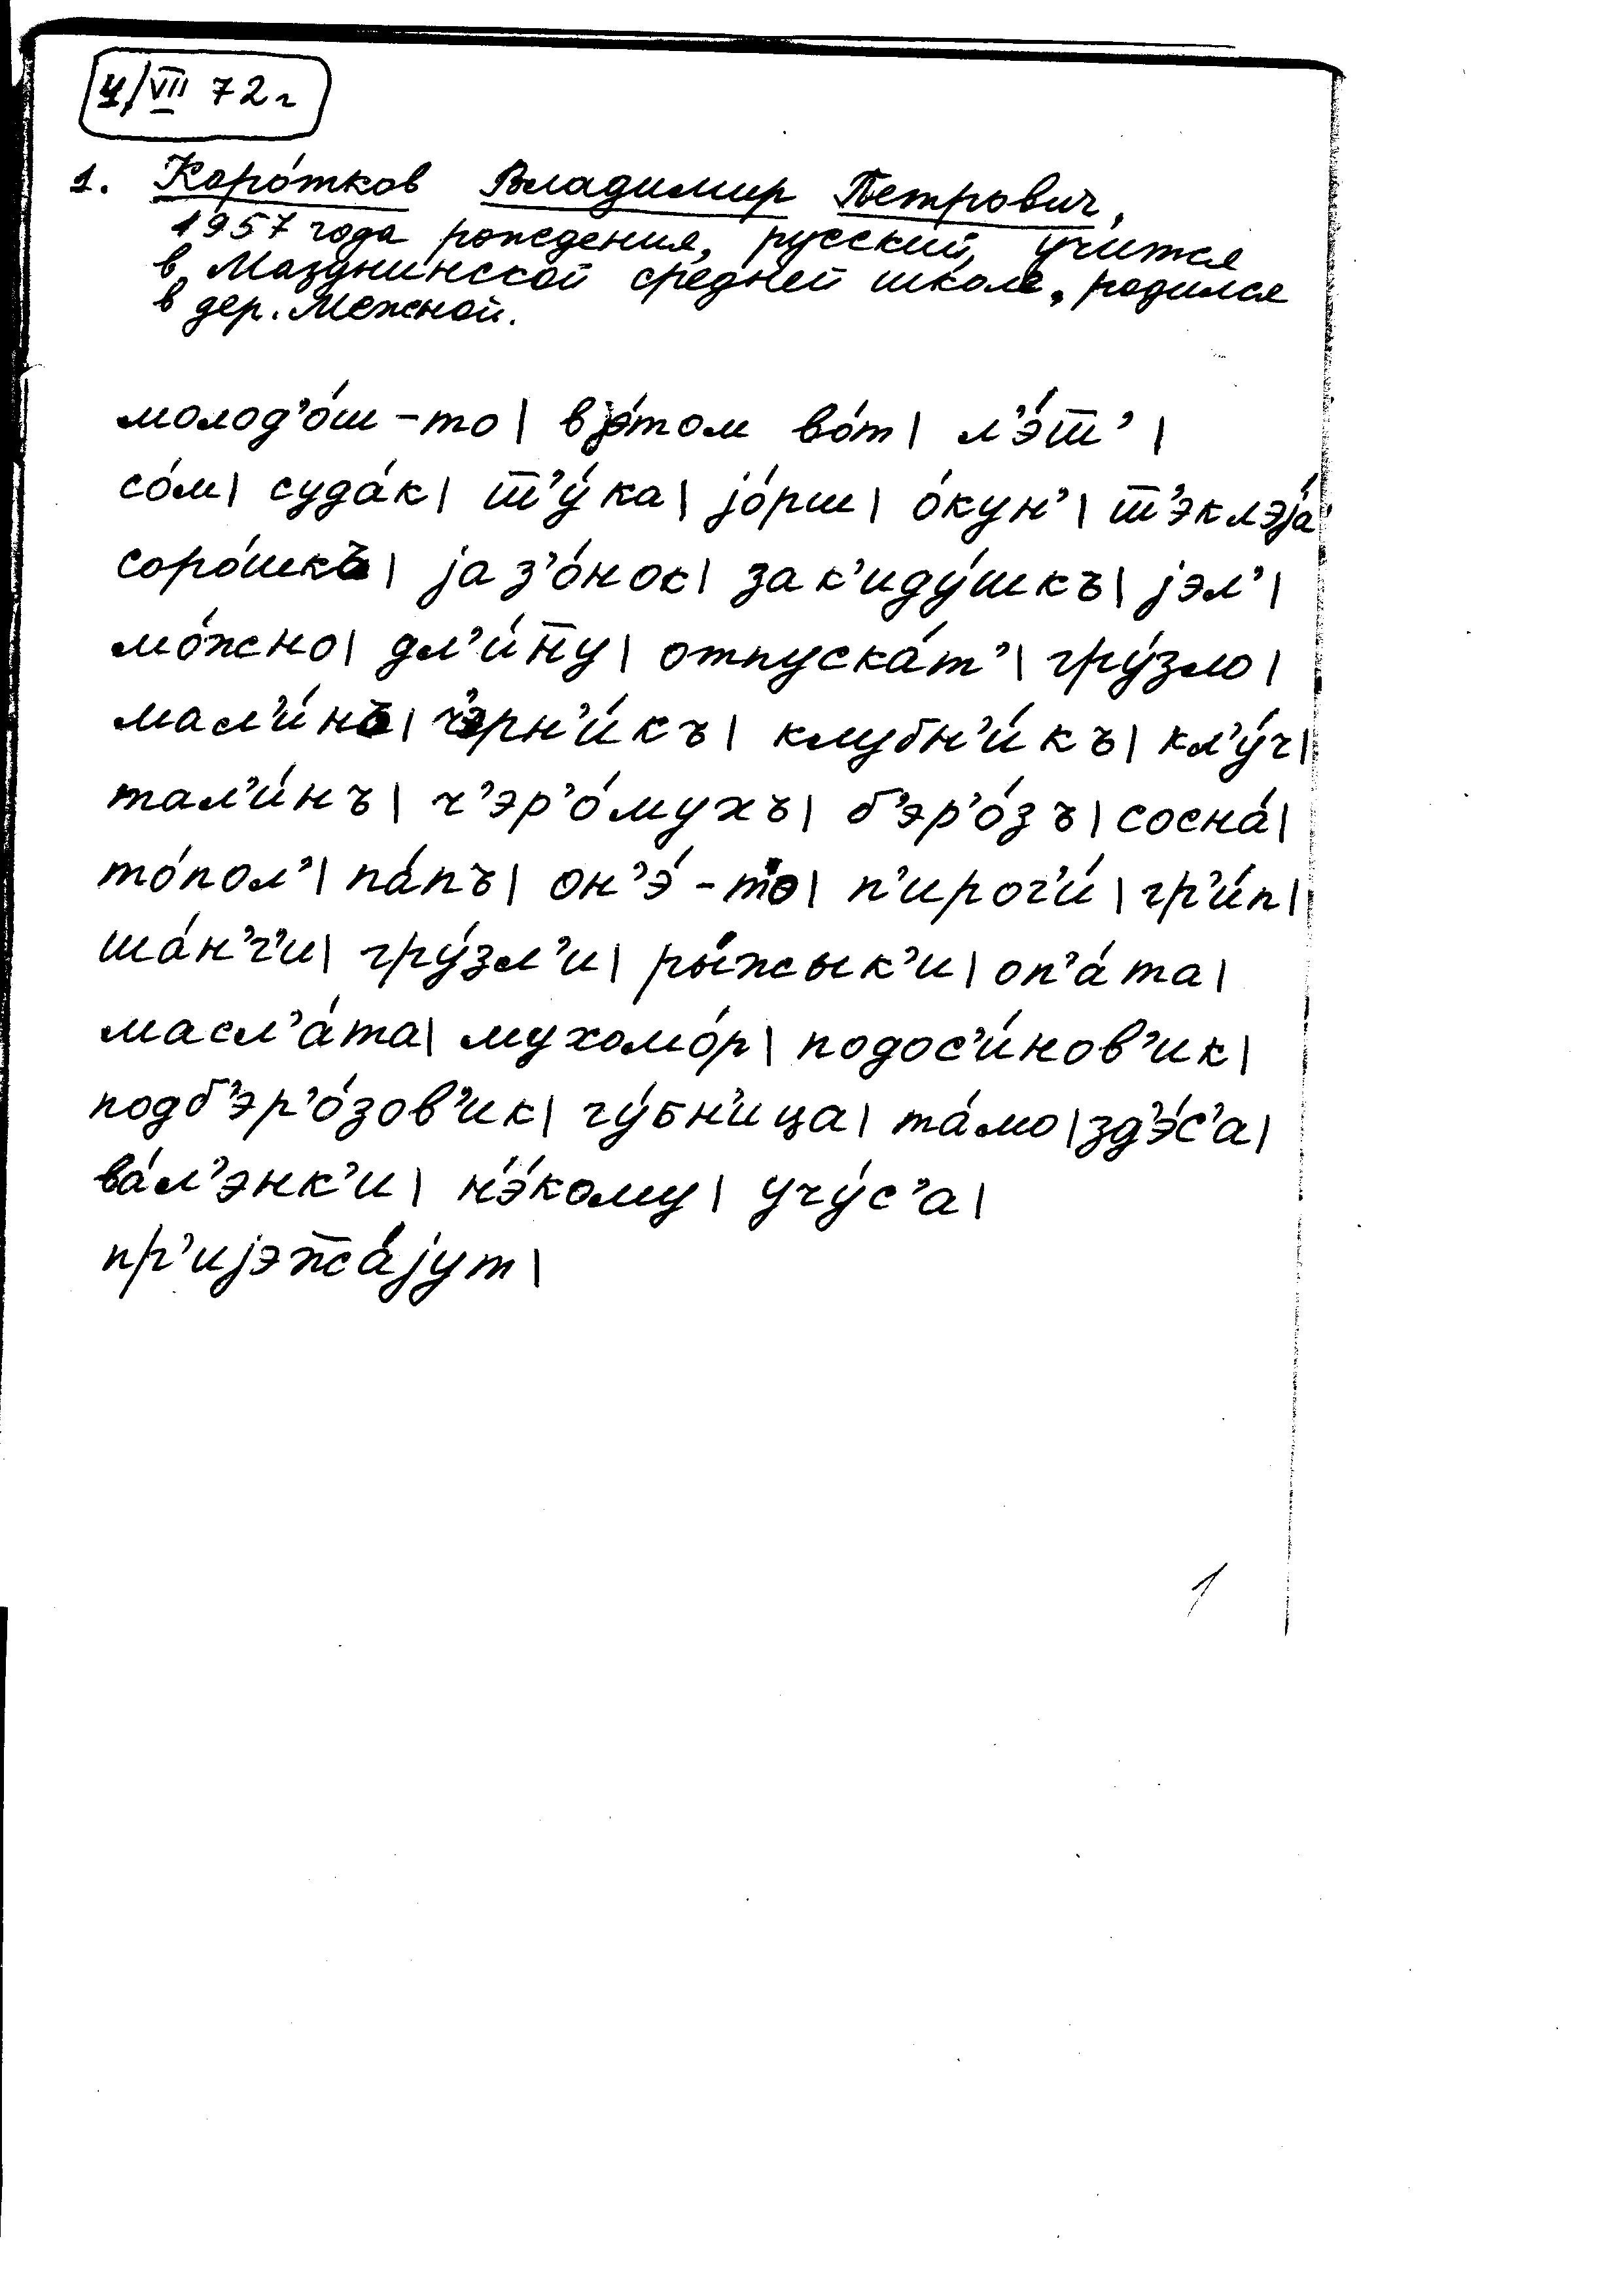 4/VII 72 г
1. Коро́тков Владимир Петрович,
1957 года рождения, русский, учится
в Мазунинской средней школе, родился
в дер. Межной.
молод’о́ш-то | вjэ́том во́т | л’э́ш̅’ |
со́м | суда́к | ш̅’у́ка | jо́рш | о́кун’ | ш̅’эклэjа́
соро́шкъ | jаз’о́нок | зак’иду́шкъ | jэл’ |
мо́жно | дл’и́н̅у | отпуска́т’ | гру́зло |
мал’и́нъ | ч’эрн’и́къ | клубн’и́къ | кл’у́ч |
тал’и́нъ | ч’эр’о́мухъ | б’эр’о́зъ | сосна́ |
то́пол’ | па́пъ | он’э́-то | п’ирог’и́ | гр’и́п |
ша́н’г’и | гру́зл’и | ры́жык’и | оп’а́та |
масл’а́та | мухомо́р | подос’и́нов’ик |
подб’эр’о́зов’ик | гу́бн’ица | та́мо | зд’э́с’а |
ва́л’энк’и | н’э́кому | учу́с’а |
пр’иjэж̅а́jут |
1